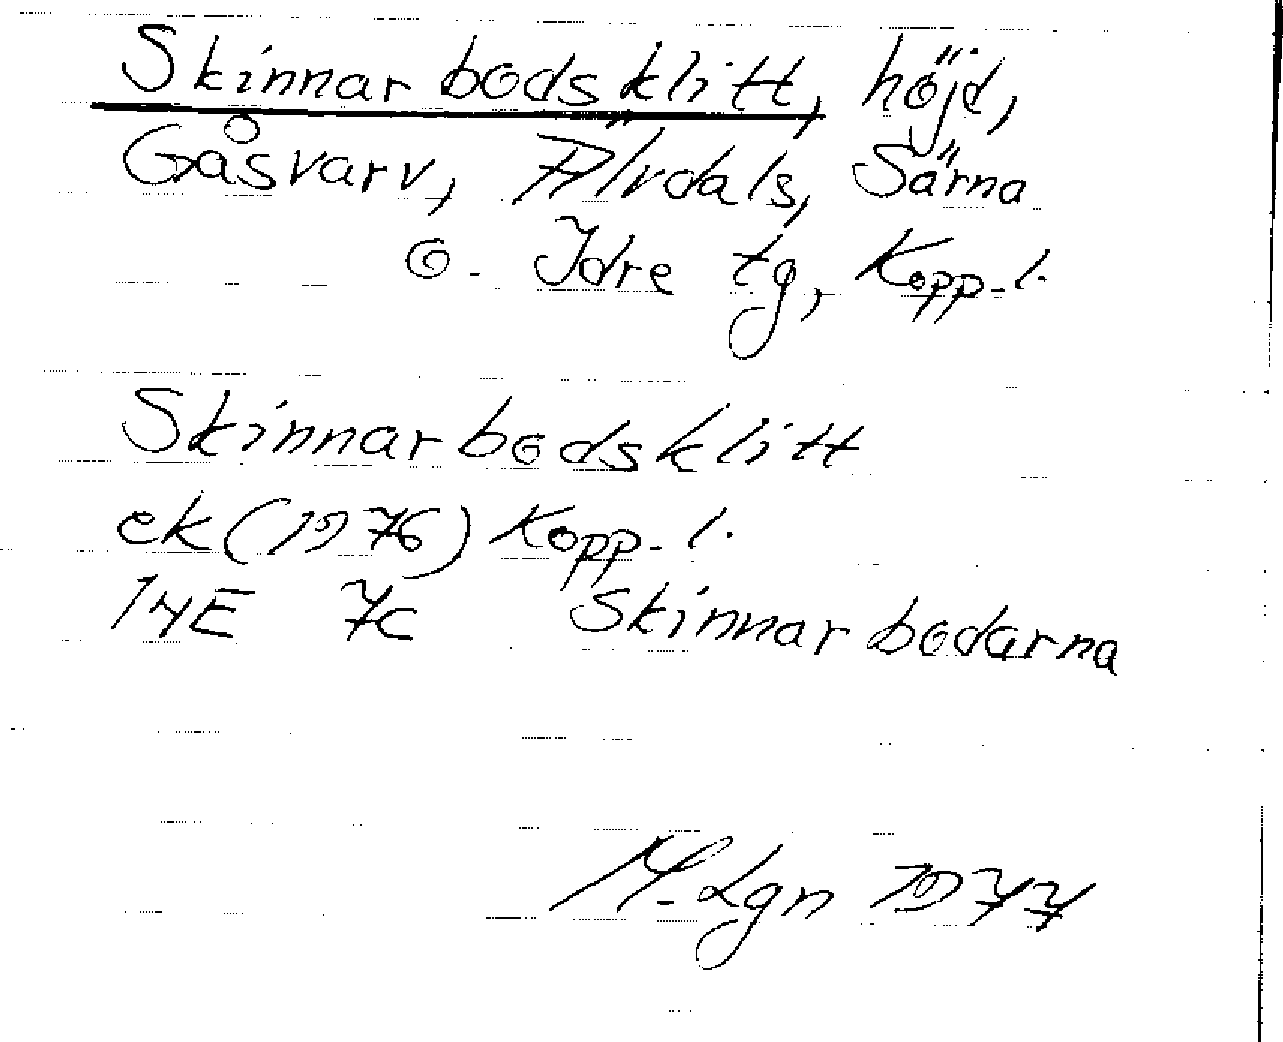 Skinnarbodsklitt, höjd,
Gåsvarv, Älvdals, Särna
o. Idre tg, Kopp. l.
Skinnarbodsklitt
ek (1976) Kopp. l.
14E 7c Skinnarbodarna
M. Lgn 1977